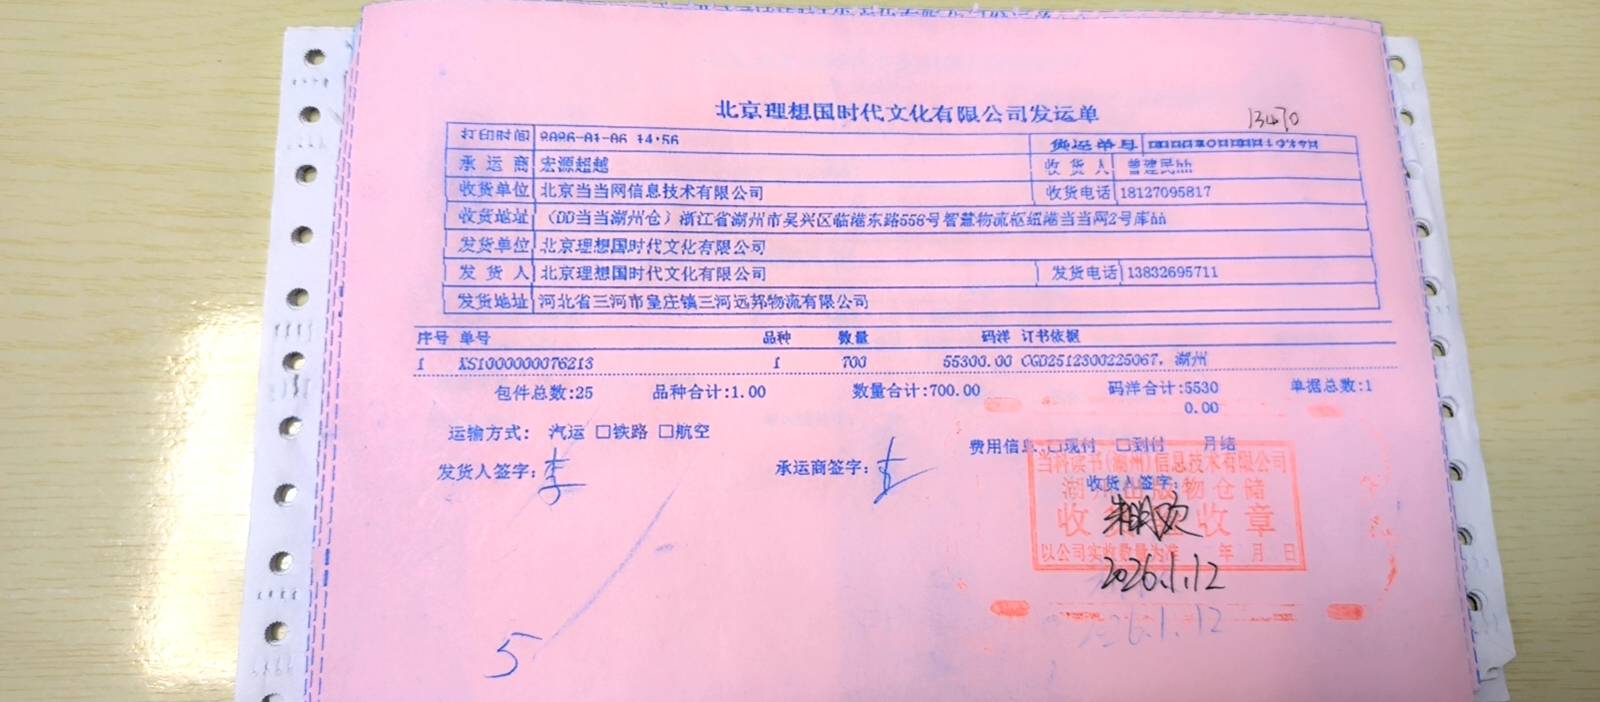 北京理想国时代文化有限公司发运单
打印时间 2026-01-06 14:56 货运单号
承运商 宏源超越 收货人 曾建民hh
收货单位 北京当当网信息技术有限公司 收货电话 18127095817
收货地址 (DD当当湖州仓)浙江省湖州市吴兴区临港东路556号智慧物流枢纽港当当网2号库hh
发货单位 北京理想国时代文化有限公司
发货人 北京理想国时代文化有限公司 发货电话 13832695711
发货地址 河北省三河市皇庄镇三河远邦物流有限公司
序号 单号 品种 数量 码洋 订书依据
1 XS1000000076213 1 700 55300.00 CGD2512300225067, 湖州
包件总数:25 品种合计:1.00 数量合计:700.00 码洋合计:5530 单据总数:1
0.00
运输方式: 汽运 □铁路 □航空
费用信息 □现付 □到付 月结
发货人签字: 李 承运商签字:
当科读书(湖州)信息技术有限公司
收货人签字:
湖州出版物仓储
收货 收章
以公司实收数量为准 年 月 日
2026.1.12
26.1.12
5